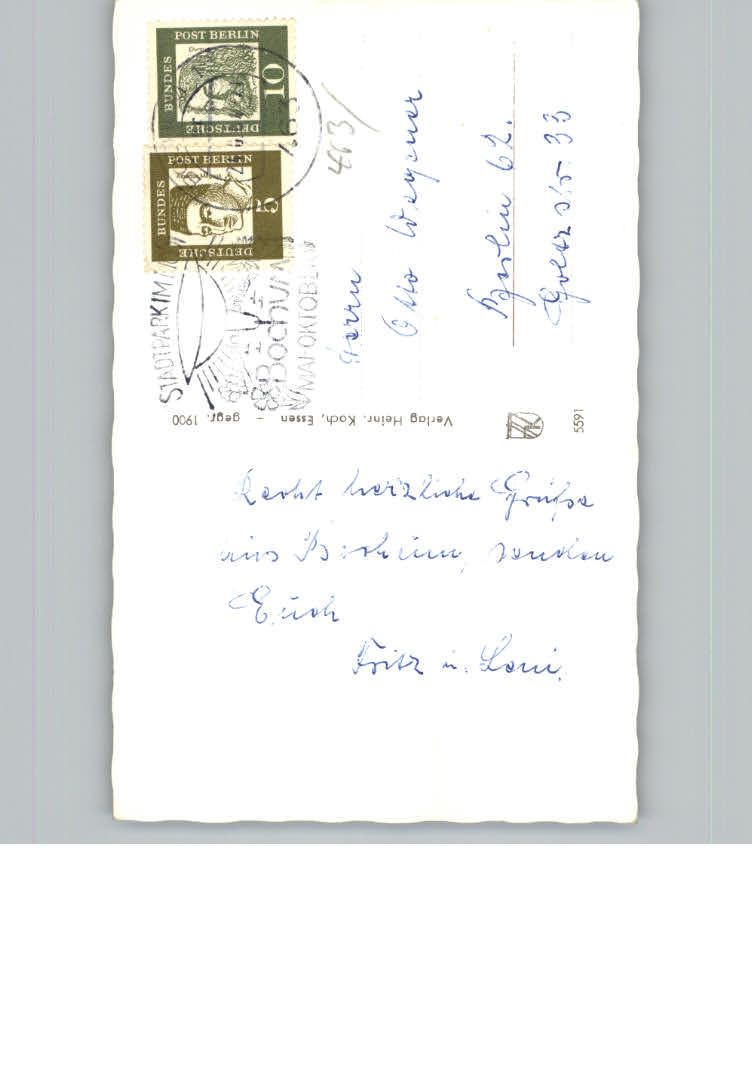 DEUTSCHE
BUNDES
POST BERLIN
10
DEUTSCHE
BUNDES
POST BERLIN
5
463
STADTPARK IM
Bochum
MAI OKTOBER
463/
Herrn
Otto Wegener
Berlin 62.
Goltzstr. 33
Verlag Heinr. Koch, Essen - gegr. 1900
5591
Recht herzliche Grüße
aus Bochum, senden
Euch
Fritz u. Leni.